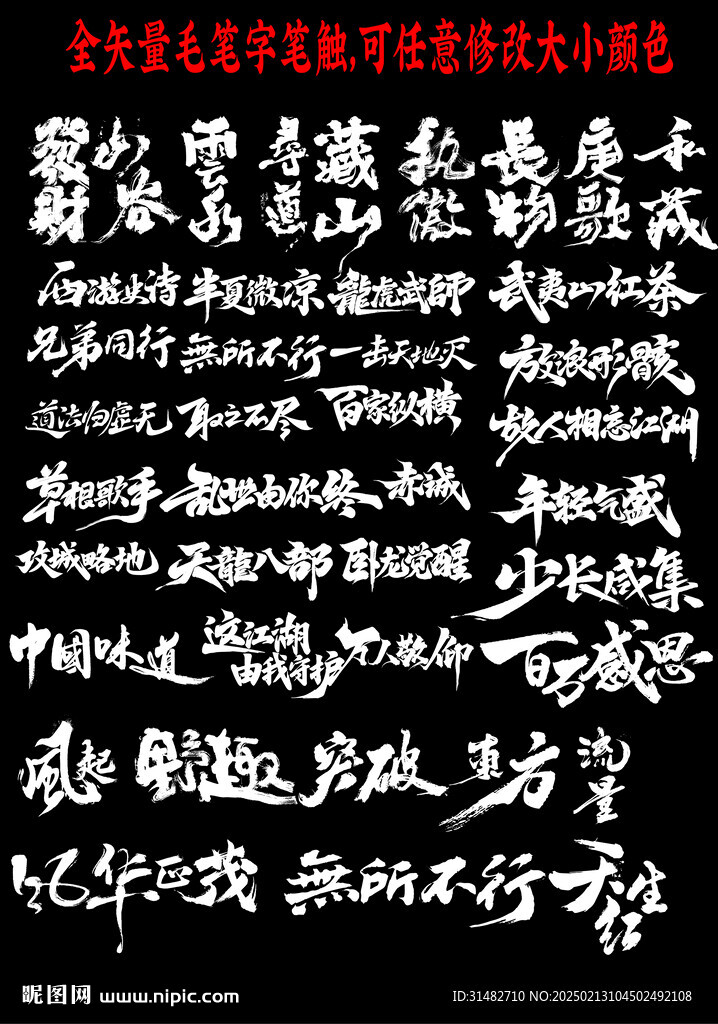 全矢量毛笔字笔触,可任意修改大小颜色
發財 山谷 雲水 尋道 藏山 執微 長物 庚歌 私藏
西游史诗 半夏微凉 龍虎武師 武夷山红茶
兄弟同行 無所不行 一击天地灭 放浪形骸
道法归虚无 取之不尽 百家纵横 故人相忘江湖
草根歌手 乱世由你终 赤诚 年轻气盛
攻城略地 天龍八部 卧龙觉醒 少长咸集
中國味道 这江湖由我守护 万人敬仰 百万感思
風起 野趣 突破 東方 流量
风华正茂 無所不行 天生红
昵图网 www.nipic.com ID:31482710 NO:20250213104502492108